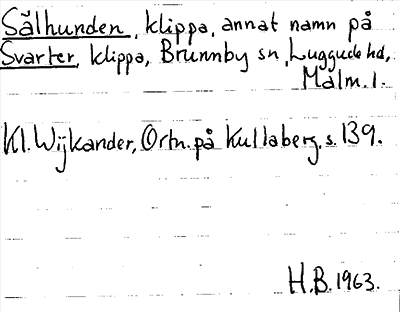 Sälhunden, klippa, annat namn på
Svarter, klippa, Brunnby sn, Luggude hd,
Malm. l.
Kl. Wijkander, Ortn. på Kullaberg, s. 139.
H.B. 1963.